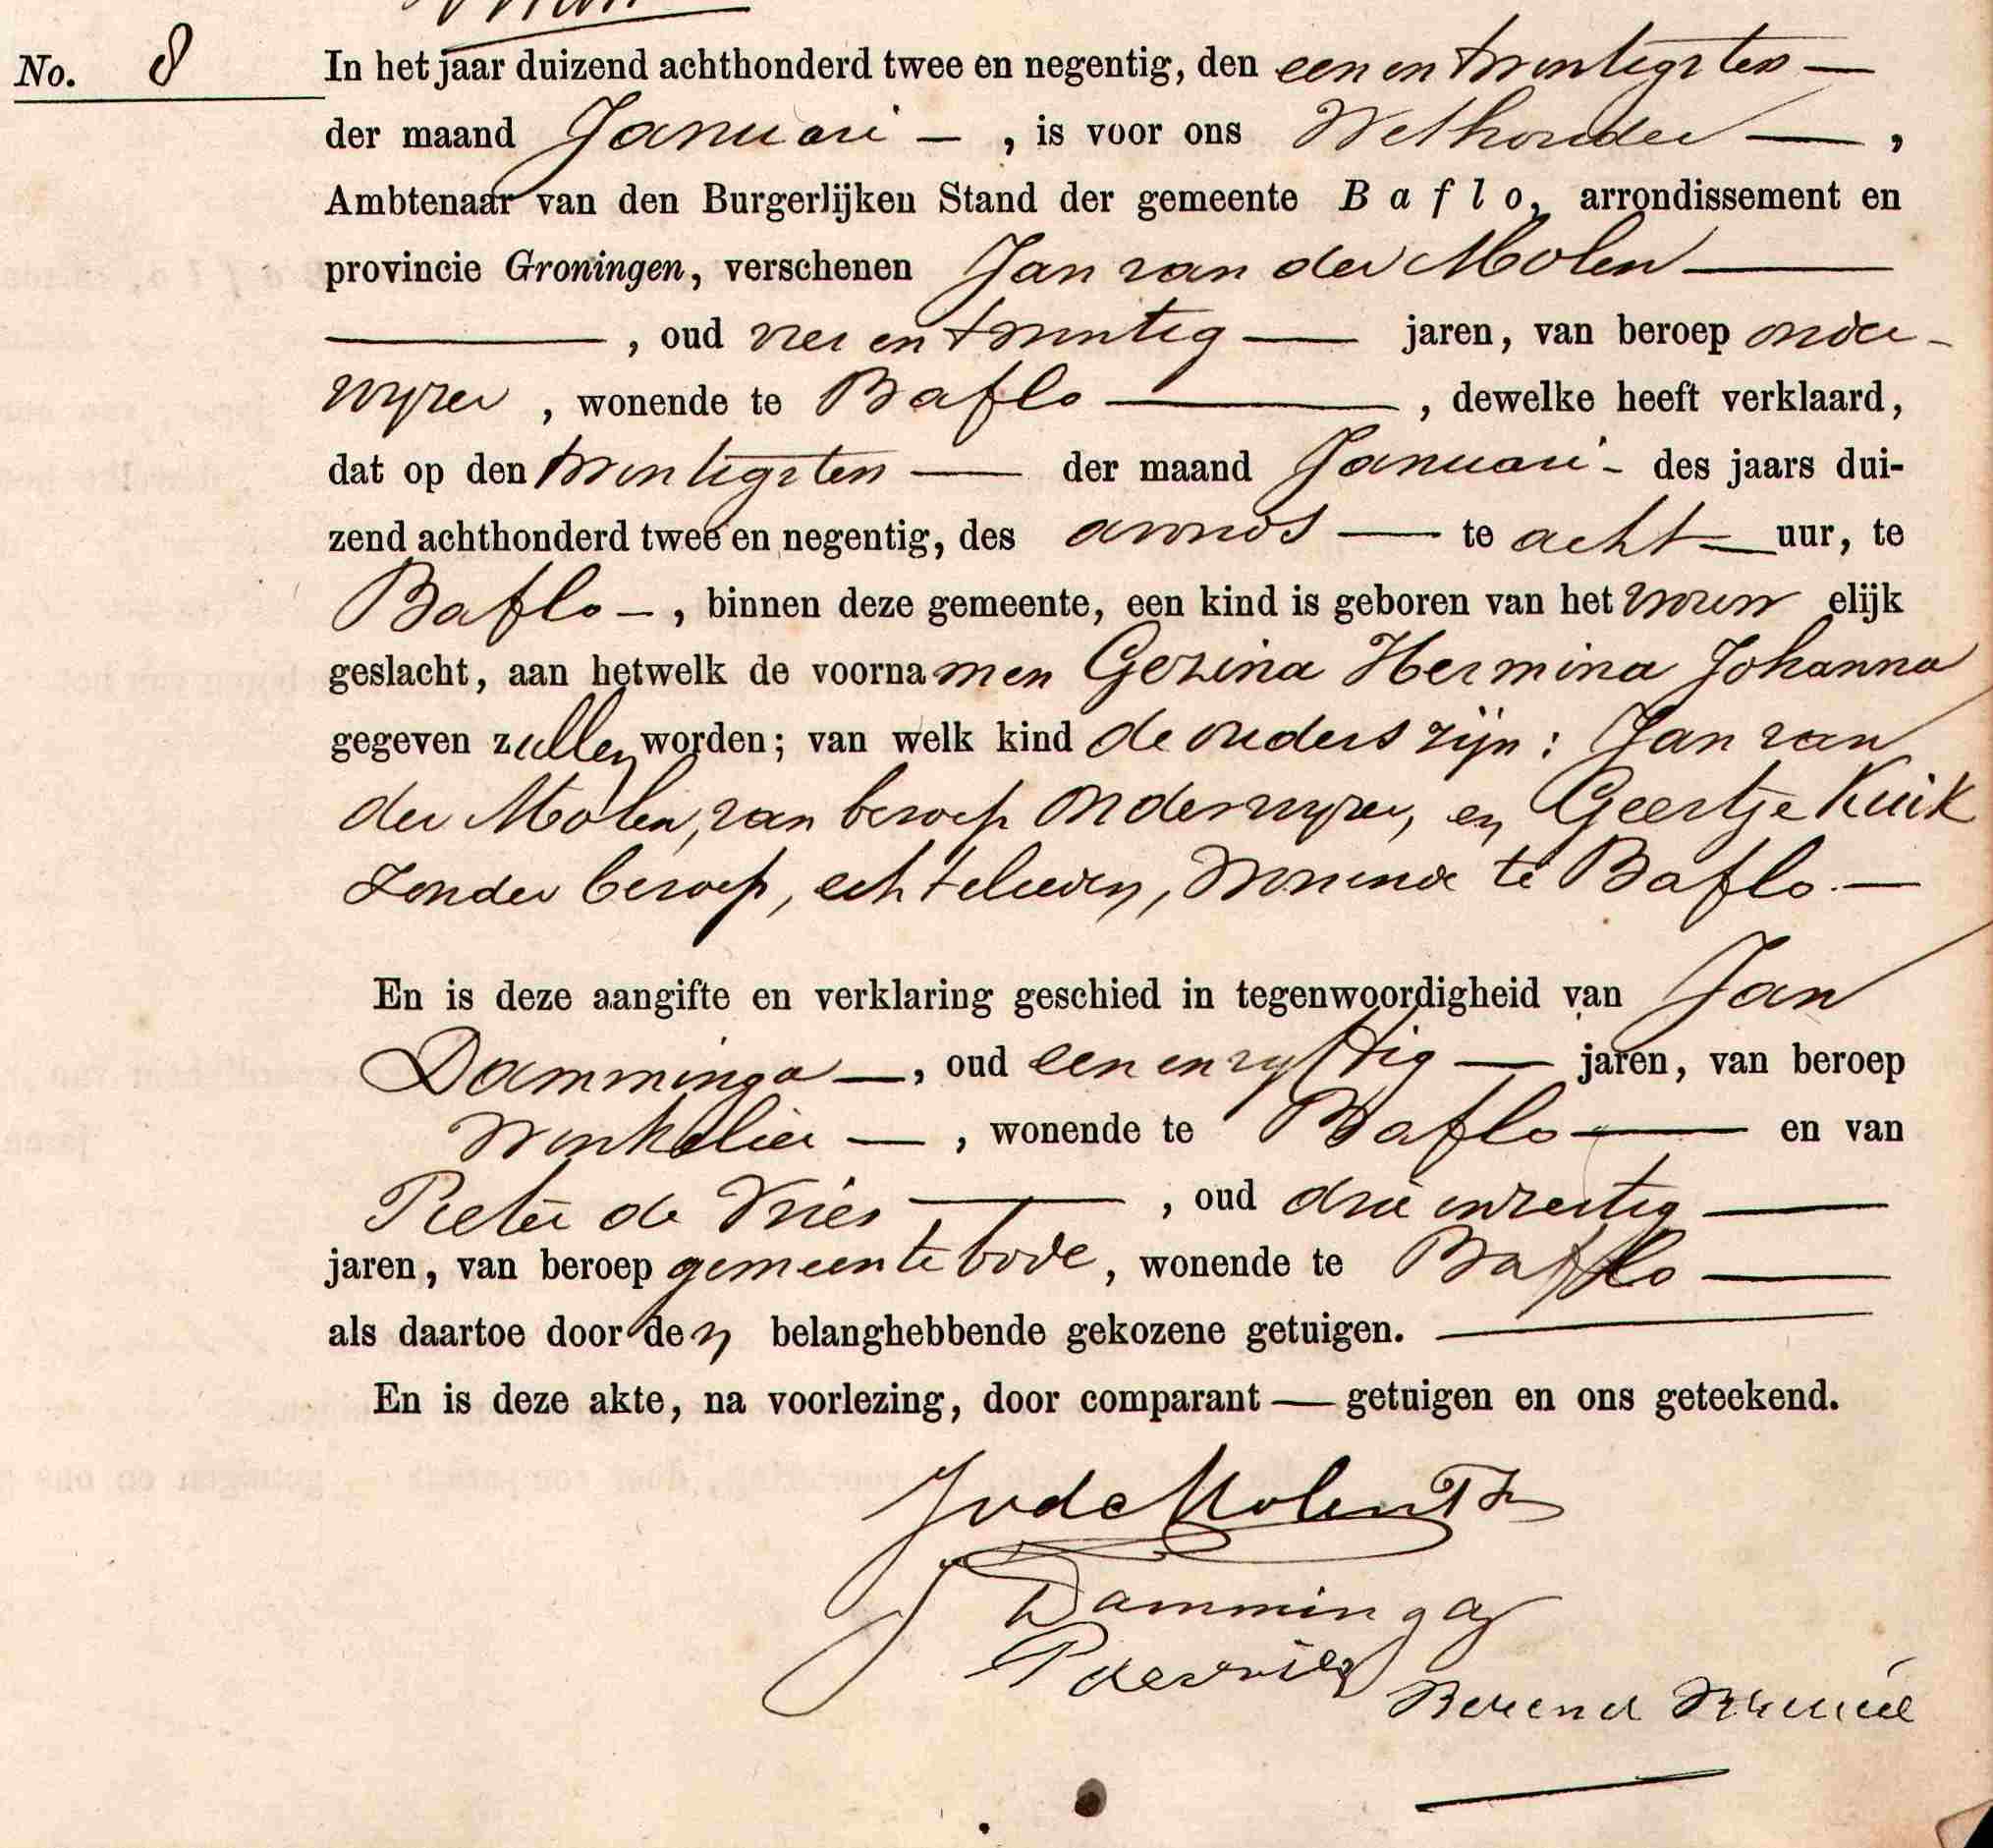 No. 8
In het jaar duizend achthonderd twee en negentig, den een en twintigsten —
der maand Januari — , is voor ons Wethouder — ,
Ambtenaar van den Burgerlijken Stand der gemeente Baflo, arrondissement en
provincie Groningen, verschenen Jan van der Molen —
— , oud vier en twintig — jaren, van beroep onder-
wijzer , wonende te Baflo — , dewelke heeft verklaard,
dat op den twintigsten — der maand Januari - des jaars dui-
zend achthonderd twee en negentig, des avonds — te acht — uur, te
Baflo — , binnen deze gemeente, een kind is geboren van het vrouw elijk
geslacht, aan hetwelk de voornamen Gezina Hermina Johanna
gegeven zullen worden; van welk kind de ouders zijn: Jan van
der Molen, van beroep onderwijzer, en Geertje Kuik
zonder beroep, echtelieden, wonende te Baflo. —
En is deze aangifte en verklaring geschied in tegenwoordigheid van Jan
Damminga — , oud een en vijftig — jaren, van beroep
winkelier — , wonende te Baflo — en van
Pieter de Vries — , oud drie en zestig —
jaren, van beroep gemeentebode , wonende te Baflo —
als daartoe door den belanghebbende gekozene getuigen. —
En is deze akte, na voorlezing, door comparant — getuigen en ons geteekend.
JvdMolen
J Damminga
P de Vries
Berend